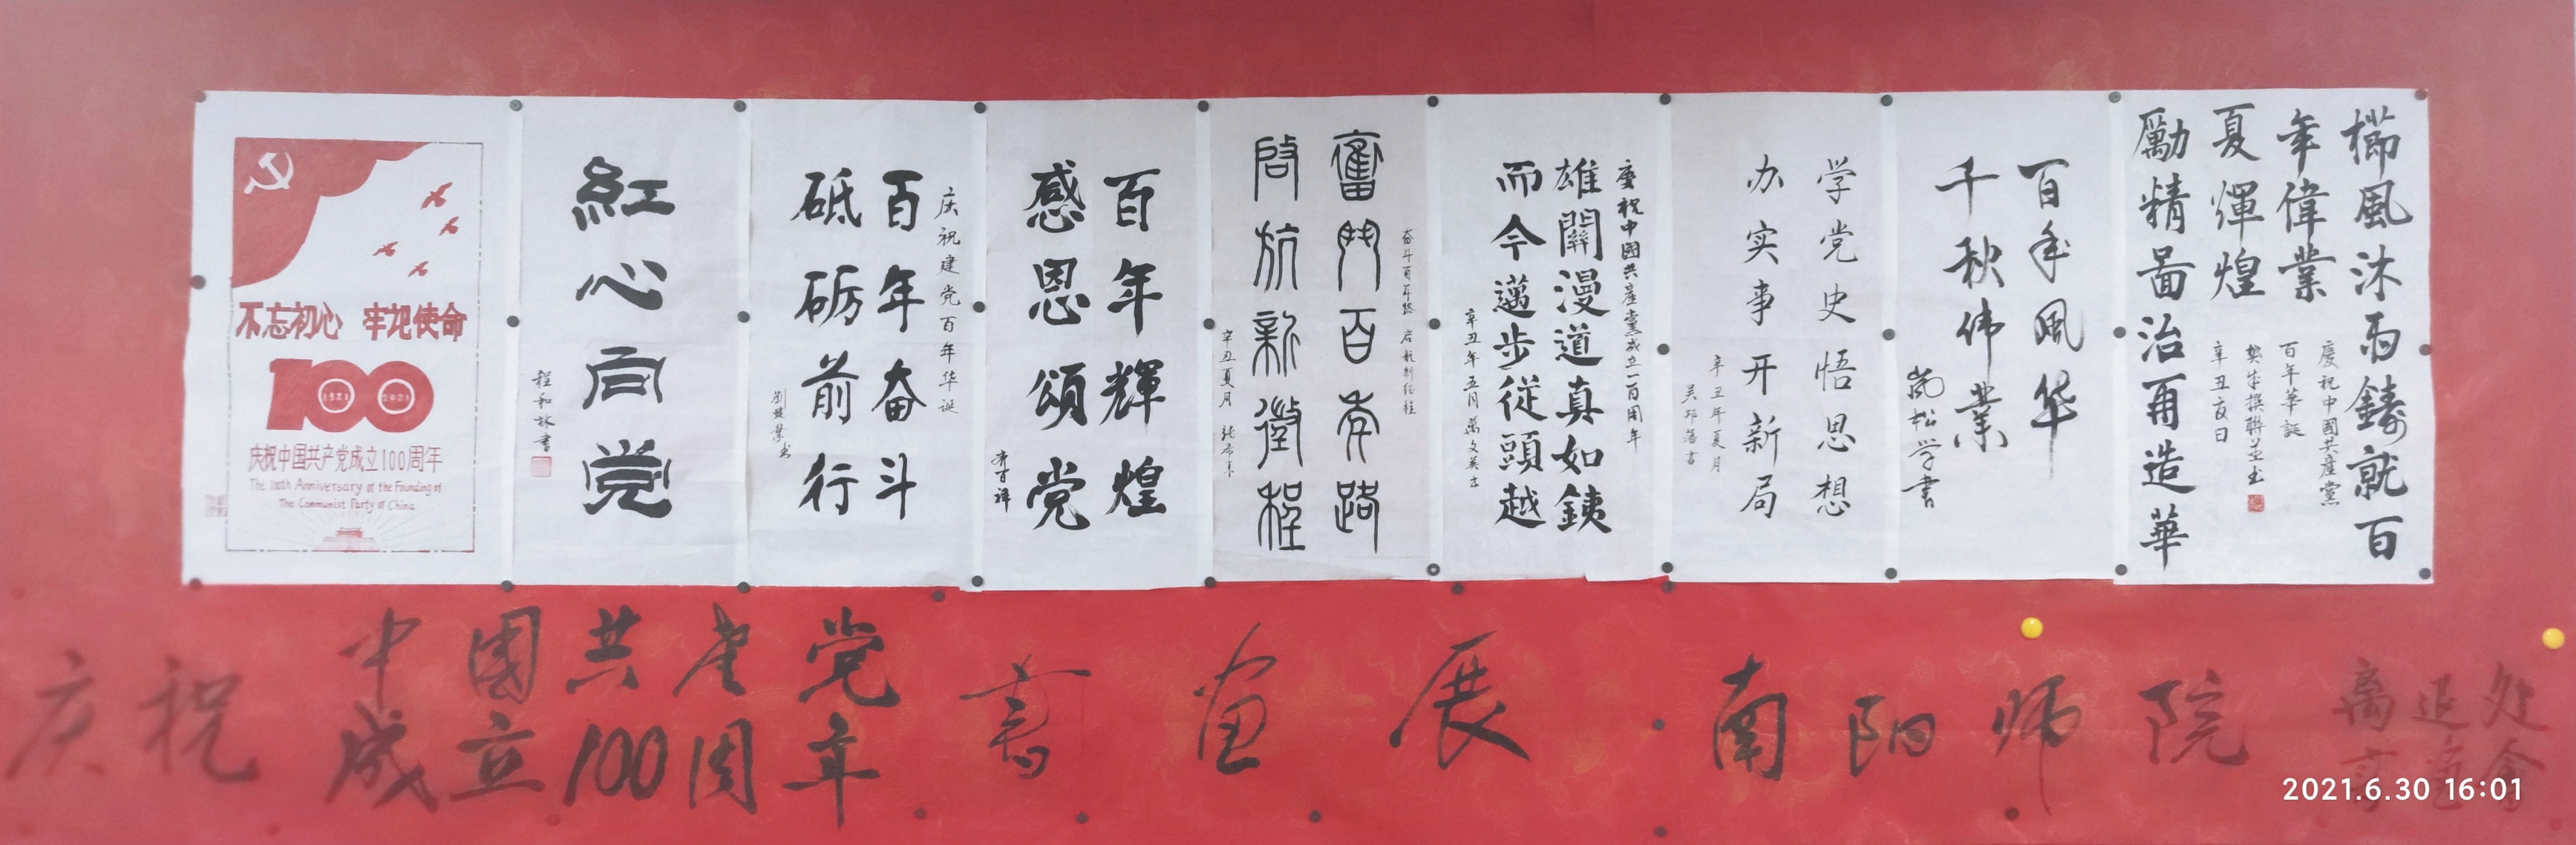 櫛風沐雨鑄就百
年偉業
夏輝煌
勵精圖治再造華
慶祝中國共產黨
百年華誕
辛丑夏日
百年风华
千秋伟業
学党史悟思想
办实事开新局
辛丑年夏月
庆祝中國共產黨成立一百周年
雄關漫道真如鐵
而今邁步從頭越
辛丑年五月
奋斗百年路 启航新征程
奮鬥百年路
啓航新徵程
辛丑夏月
百年輝煌
感恩頌党
庆祝建党百年华诞
百年奋斗
砥砺前行
紅心向党
程和林書
不忘初心 牢记使命
100
1921 2021
庆祝中国共产党成立100周年
The 100th Anniversary of the Founding of
The Communist Party of China
庆祝
中國共產党
成立100周年
書画展
南阳师院
离退处
2021.6.30 16:01